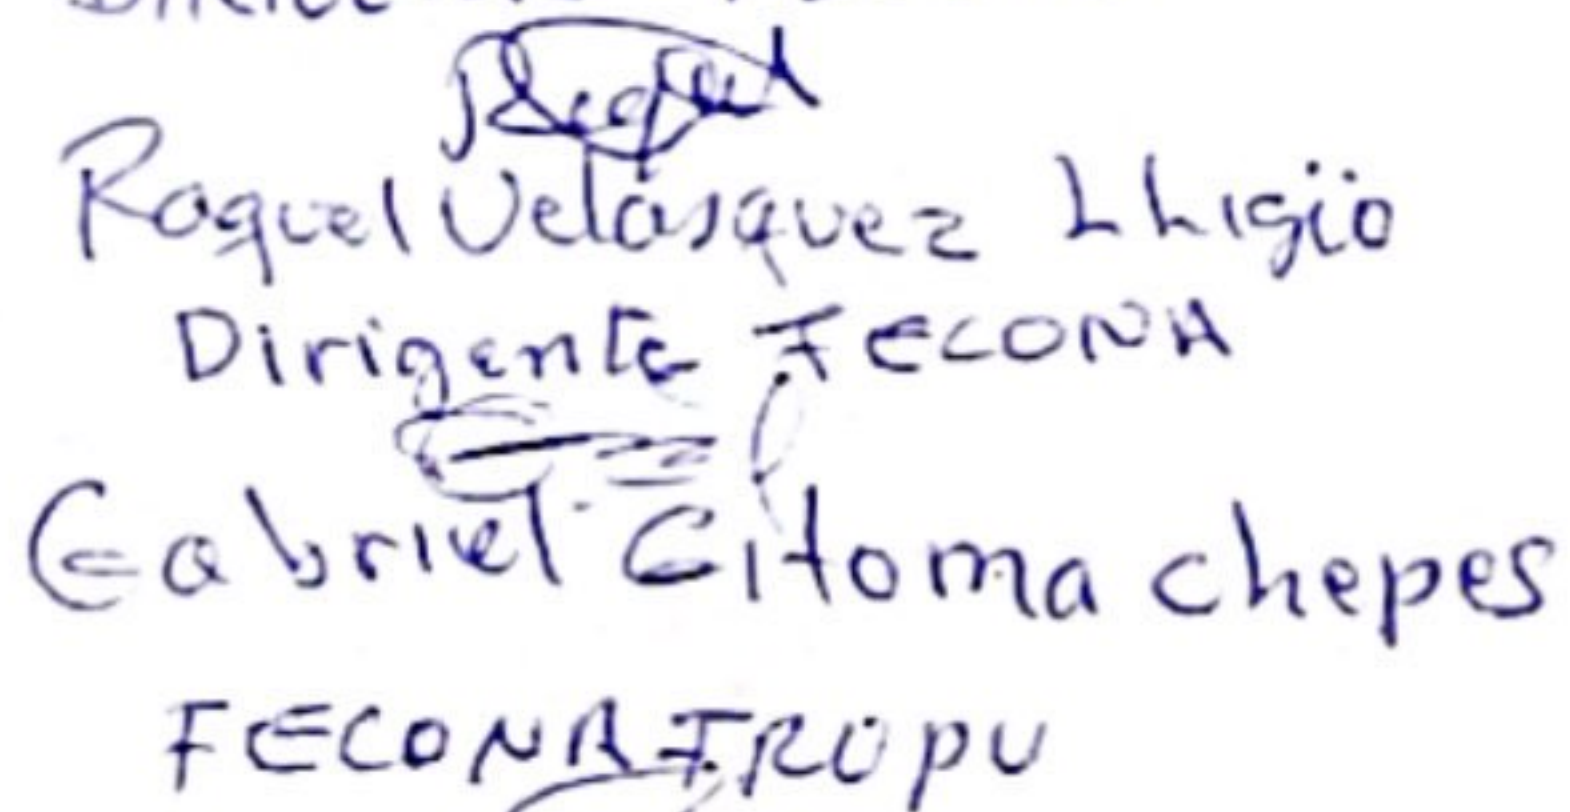 Raquel Velásquez Lhigio
Dirigente FECONA
Gabriel Citoma chepes
FECONAFROPU